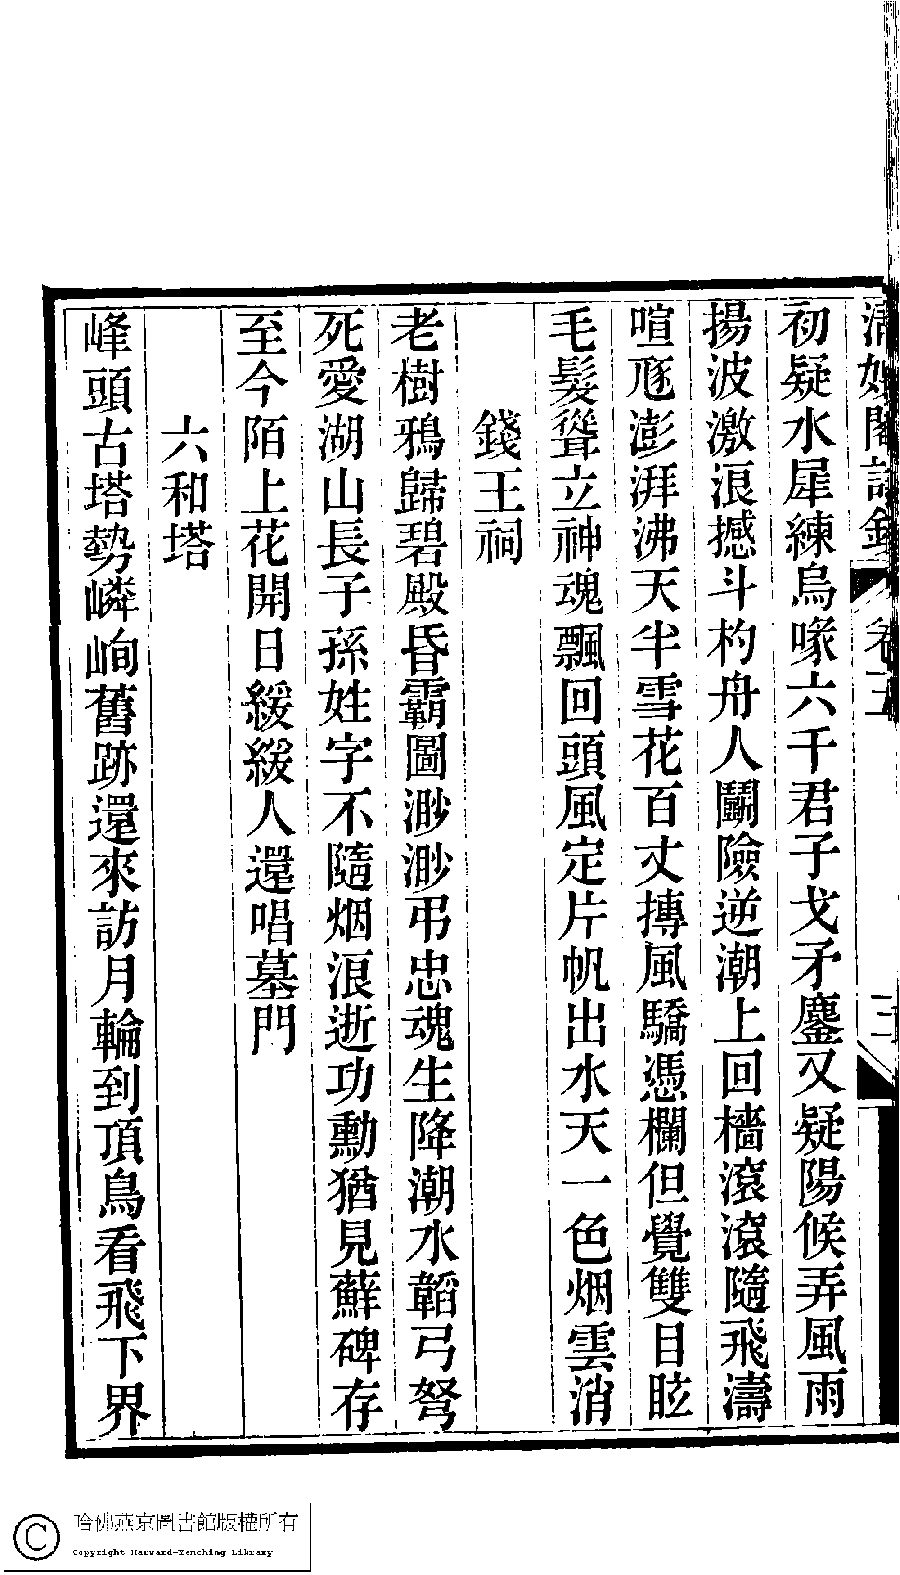 清娛閣詩鈔 卷五 二
初疑水犀練烏喙六千君子戈矛鏖又疑陽候弄風雨
揚波激浪撼斗杓舟人鬭險逆潮上回檣滾滾隨飛濤
喧豗澎湃沸天半雪花百丈摶風驕憑欄但覺雙目眩
毛髮聳立神魂飄回頭風定片帆出水天一色烟雲消
錢王祠
老樹鴉歸碧殿昏霸圖渺渺弔忠魂生降潮水韜弓弩
死愛湖山長子孫姓字不隨烟浪逝功勳猶見蘇碑存
至今陌上花開日緩緩人還唱墓門
六和塔
峰頭古塔勢嶙峋舊跡還來訪月輪到頂鳥看飛下界
哈佛燕京圖書館版權所有
Copyright Harvard-Yenching Library